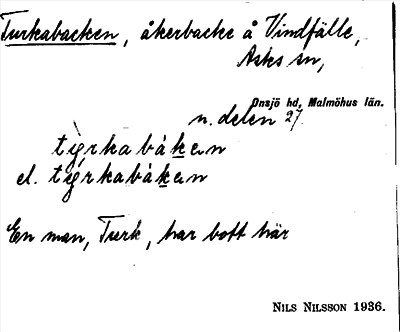 Turkabacken, åkerbacke å Vindfälle,
Asks sn,
Onsjö hd, Malmöhus län.
n. delen 27
tyrkabàkən
el. tyrkabàkən
En man, Turk, har bott här
NILS NILSSON 1936.